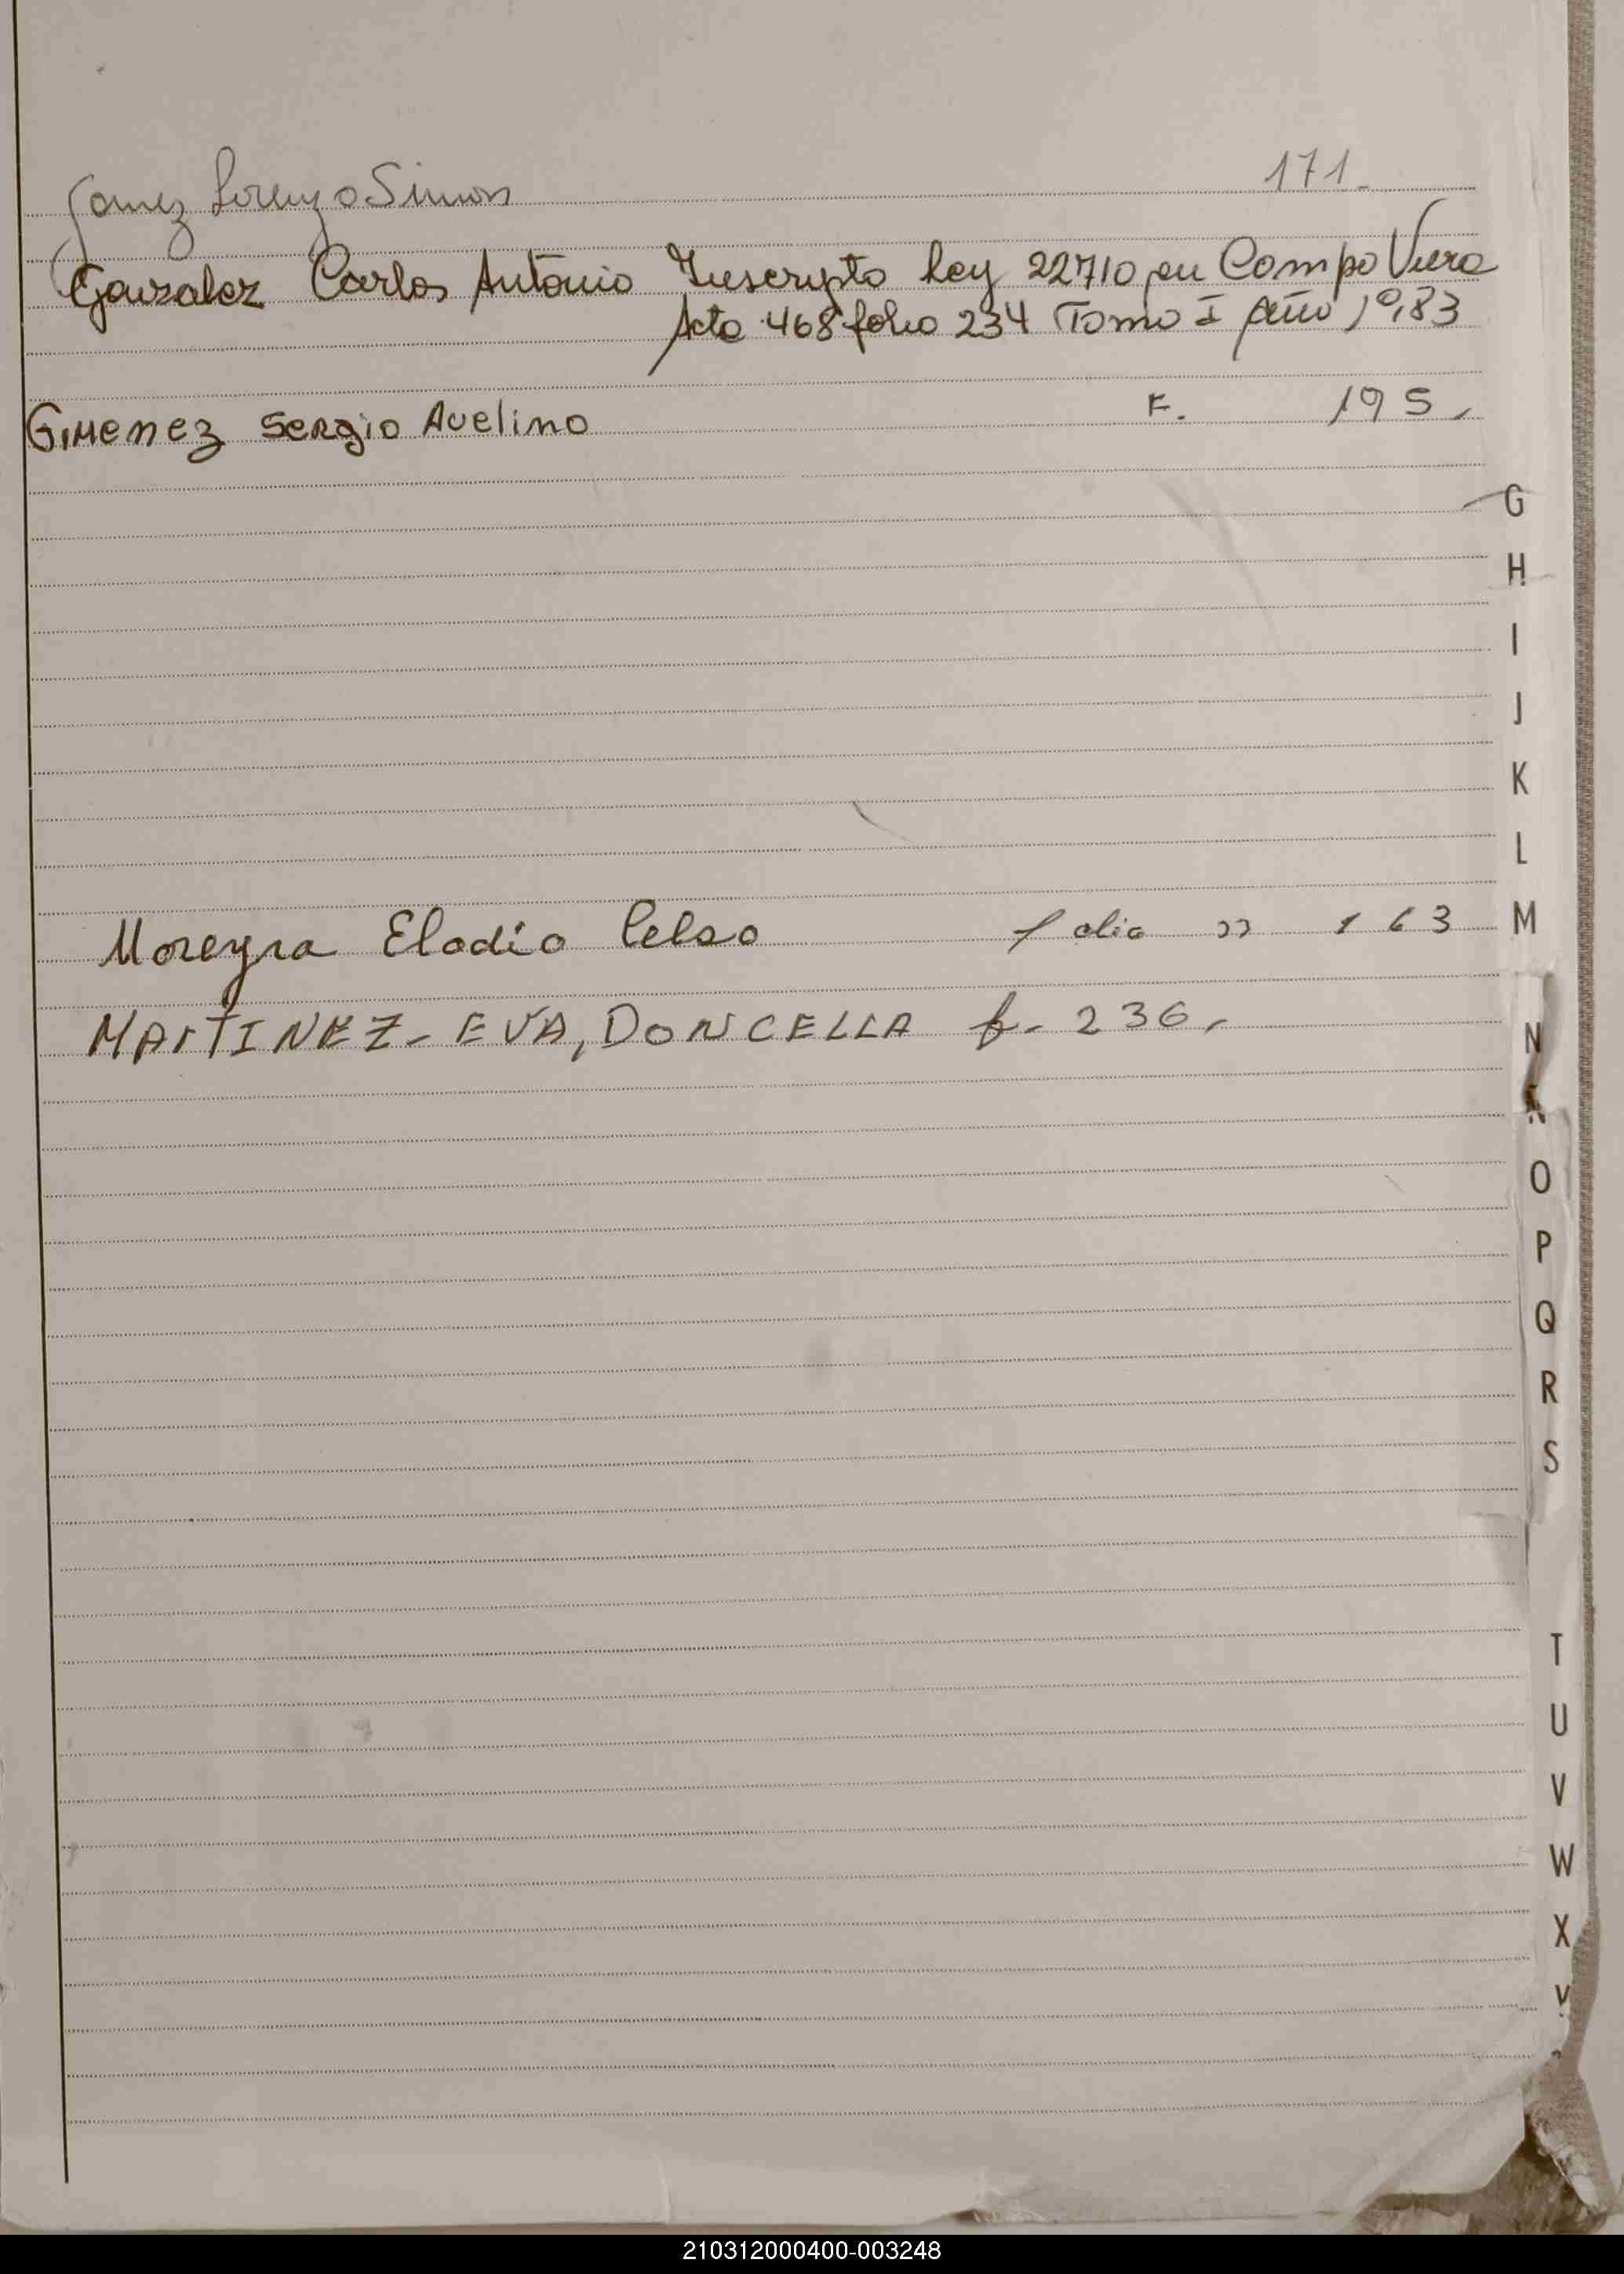 Gomez Lorenzo Simon 171.
Gonzalez Carlos Antonio Inscripto Ley 22710 en Campo Viera
Acta 468 folio 234 Tomo I Año 1983
GiMenez Sergio Avelino F. 195.
G
H
I
J
K
L
Moreyra Eladio Celso folio " 163 M
MARTINEZ- EVA, DONCELLA f- 236.
N
Ñ
O
P
Q
R
S
T
U
V
W
X
Y
210312000400-003248